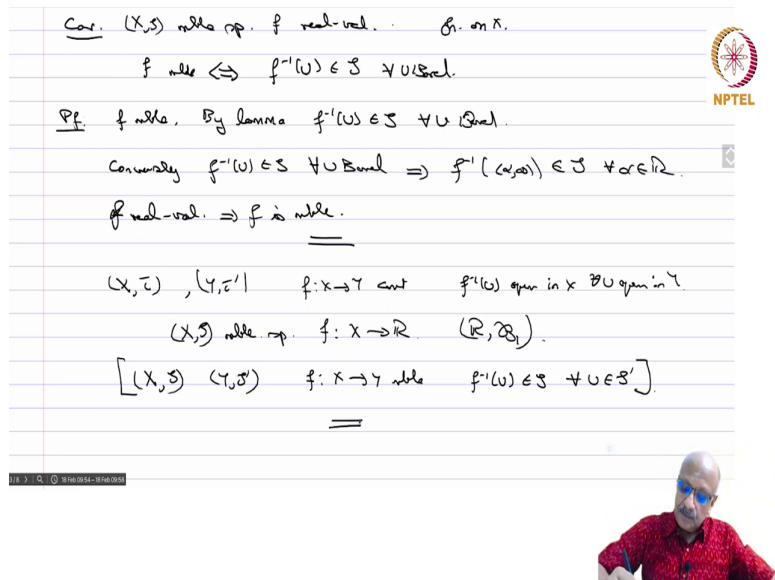 Cor. (X,S) mble sp. f real-val. fn. on X.
f mble <=> f⁻¹(U) ∈ S ∀ U Borel.
NPTEL
Pf. f mble. By lemma f⁻¹(U) ∈ S ∀ U Borel.
Conversely f⁻¹(U) ∈ S ∀ U Borel => f⁻¹((α,∞)) ∈ S ∀ α ∈ ℝ.
f real-val. => f is mble.
(X,τ), (Y,τ') f: X → Y cont f⁻¹(U) open in X ∀ U open in Y.
(X,S) mble sp. f: X → ℝ (ℝ, B₁).
[(X,S) (Y,S') f: X → Y mble f⁻¹(U) ∈ S ∀ U ∈ S'].
3/8 18 Feb 09:54 – 18 Feb 09:58